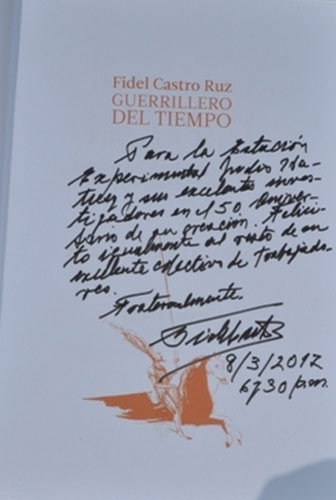 Fidel Castro Ruz
GUERRILLERO
DEL TIEMPO
Para la Estación
Experimental Indio Hatuey
y sus excelentes inves-
tigadores en el 50 Aniver-
sario de su creación. Felici-
to igualmente al resto de su
excelente colectivo de trabajado-
res.
Fraternalmente.
Fidel Castro
8/3/2012
6 y 30 p.m.